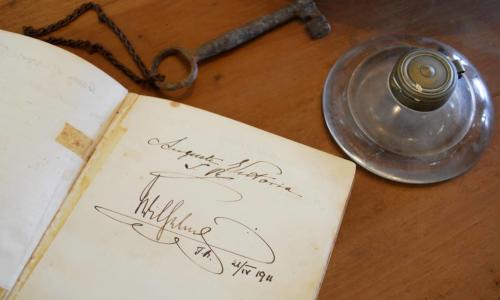 Auguste Victoria
Wilhelm
21/IV 1911